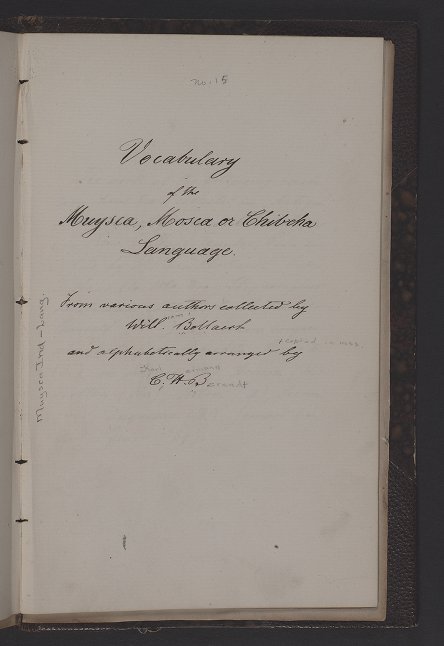 no. 15
Vocabulary
of the
Muysca, Mosca or Chibcha
Language.
From various authors collected by
Will. Bollaert
and alphabetically arranged by
C. H. B
Muysca Ind - Lang.